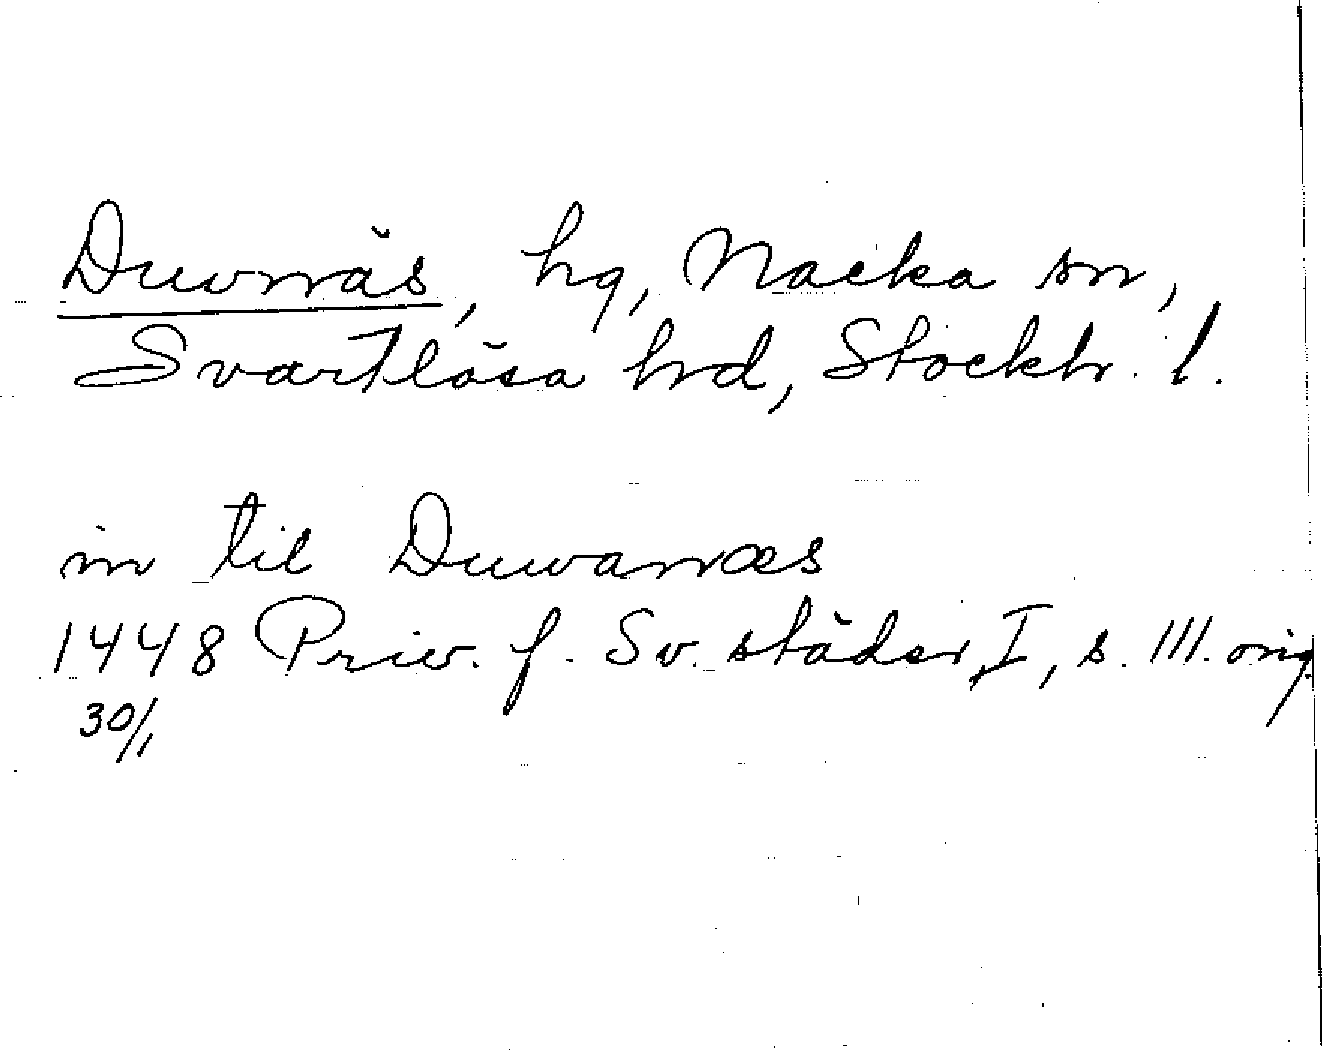 Duvnäs, hg, Nacka sn,
Svartlösa hrd, Stockh. l.
in til Duwanæs
1448 Priv. f. Sv. städer, I, s. 111. orig.
30/1